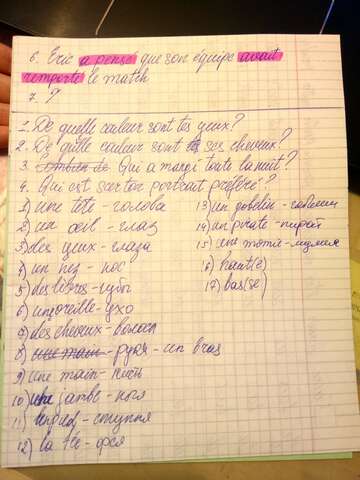 6. Eric a pensé que son équipe avait
remporté le match.
7. 9
1. De quelle couleur sont tes yeux?
2. De quelle couleur sont ses cheveux?
3. Qui a mangé toute la nuit?
4. Qui est sur ton portrait préféré?
1) une tête - голова
2) un œil - глаз
3) des yeux - глаза
4) un nez - нос
5) des lèvres - губы
6) un oreille - ухо
7) des cheveux - волосы
8) une main - рука - un bras
9) une main - кисть
10) une jambe - нога
11) un pied - ступня
12) la fée - фея
13) un gobelin - гоблин
14) un pirate - пират
15) une momie - мумия
16) haut(e)
17) bas(se)